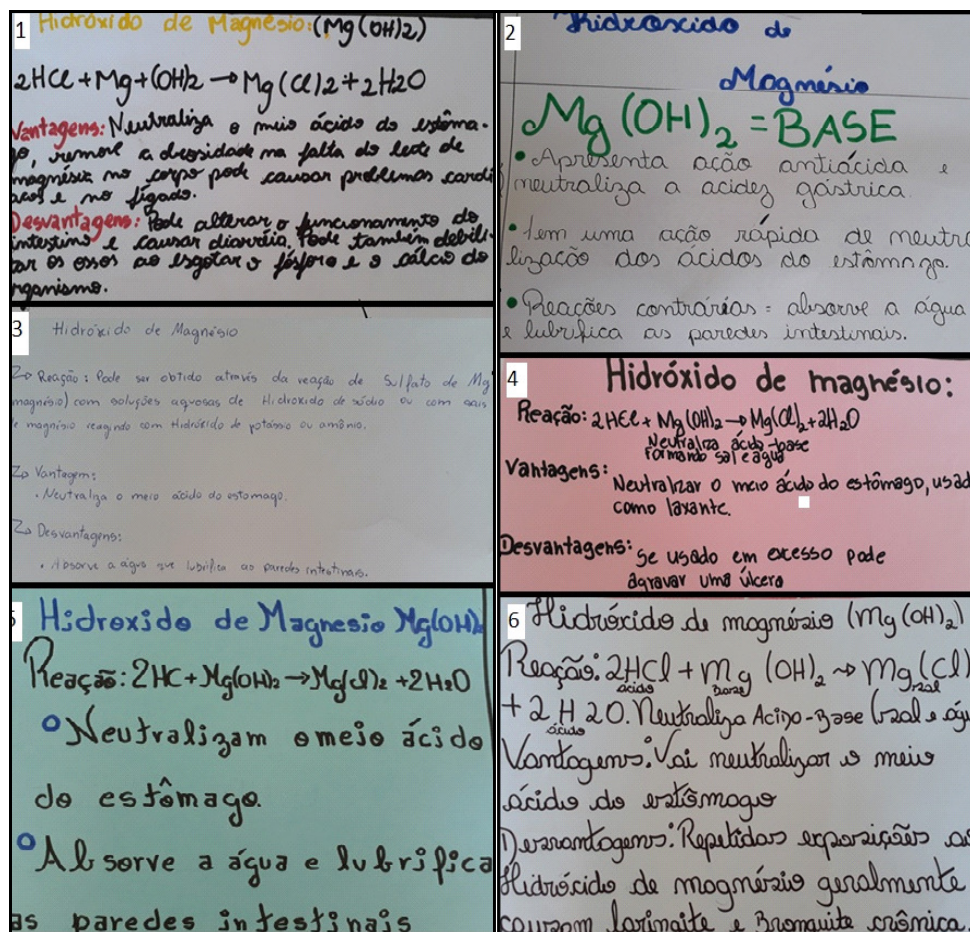 1
Hidróxido de Magnésio: (Mg(OH)2)
2HCl + Mg + (OH)2 → Mg(Cl)2 + 2H2O
Vantagens: Neutraliza o meio ácido do estôma-
go, remove a
na falta do leite de
magnésia no corpo pode causar problemas cardí
acos e no fígado.
Desvantagens: Pode alterar o funcionamento do
intestino e causar diarréia. Pode também debili-
tar os ossos ao esgotar o fósforo e o cálcio do
organismo.
2
Hidroxido de
Magnésio
Mg(OH)2 = BASE
• Apresenta ação antiácida e
neutraliza a acidez gástrica.
• Tem uma ação rápida de neutra
lização dos ácidos do estômago.
• Reações contrárias = absorve a água
e lubrifica as paredes intestinais.
3
Hidróxido de Magnésio
Reação: Pode ser obtido através da reação de Sulfato de Mg
magnésio) com soluções aquosas de Hidroxido de sódio ou com sais
de magnésio reagindo com Hidróxido de potássio ou amônio.
Vantagem:
• Neutraliza o meio ácido do estomago.
Desvantagens:
• Absorve a água que lubrifica as paredes intestinais.
4
Hidróxido de magnésio:
Reação: 2HCl + Mg(OH)2 → Mg(Cl)2 + 2H2O
Neutraliza ácido-base
Formando sal e água
Vantagens: Neutralizar o meio ácido do estômago, usad
como laxante.
Desvantagens: Se usado em excesso pode
agravar uma úlcera
5
Hidroxido de Magnesio Mg(OH)2
Reação: 2HC + Mg(OH)2 → Mg(cl)2 + 2H2O
Neutralizam o meio ácido
do estômago.
Absorve a água e lubrifica
as paredes intestinais
6
Hidróxido de magnésio (Mg(OH)2)
Reação: 2HCl + Mg (OH)2 → Mg(Cl)
ácido Base sal
+ 2 H2O. Neutraliza Acido-Base (sal e águ
ácido
Vantagens: Vai neutralizar o meio
ácido do estômago
Desvantagens: Repetidas exposições ao
Hidróxido de magnésio geralmente
causam larinaite e Bronquite crônica.